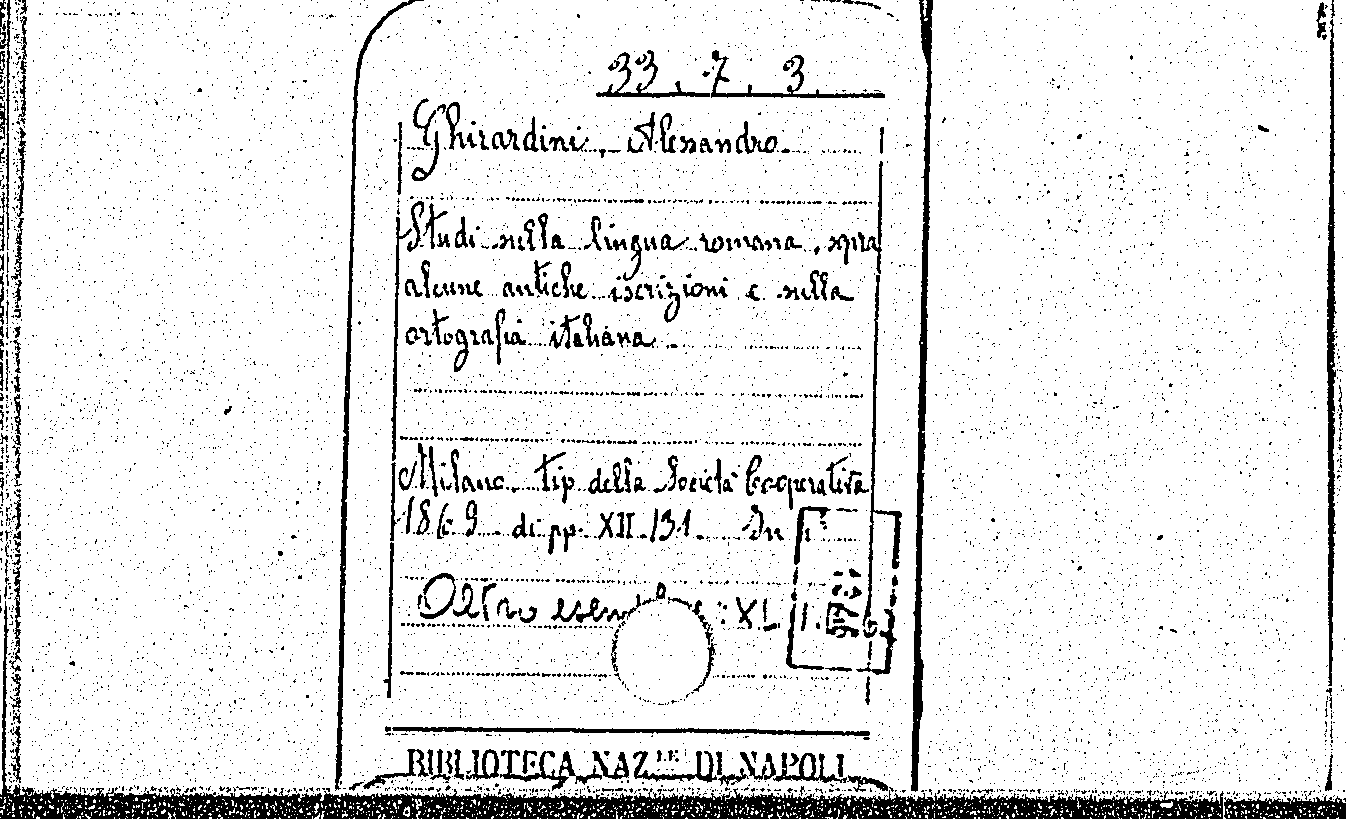 33.7.3.
Ghirardini, Alessandro.
Studi sulla lingua romana, sopra
alcune antiche iscrizioni e sulla
ortografia italiana.
Milano. tip della Società Cooperativa
1869. di pp. XII.131. In
Altro : XL
BIBLIOTECA NAZ.LE DI NAPOLI